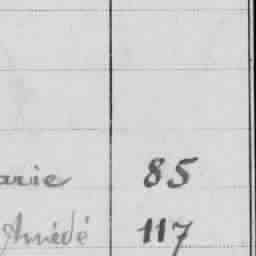 arie 85
Amédé 117